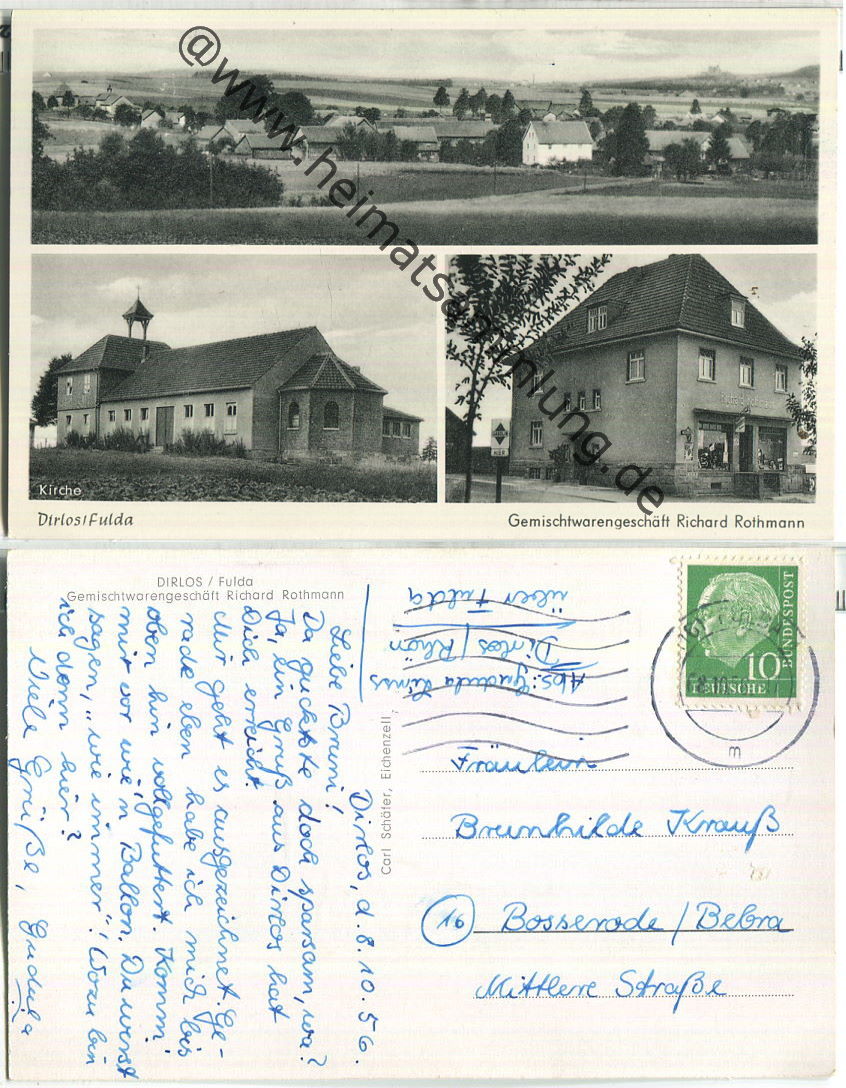 @www.heimatsammlung.de
HIER
Kirche
Dirlos/Fulda
Gemischtwarengeschäft Richard Rothmann
DIRLOS / Fulda
Gemischtwarengeschäft Richard Rothmann
Dirlos, d. 8.10.56.
Liebe Bruni!
Da guckste doch sparsam, wa?
Ja, ein Gruß aus Dirlos hat
Dich erreicht.
Mir geht es ausgezeichnet. Ge-
rade eben habe ich mich bis
oben hin vollgefuttert. Komm
mir vor wie'n Ballon. Du wirst
sagen, „wie immer"! Wozu bin
ich denn hier?
Viele Grüße, Gudula
Carl Schäfer, Eichenzell,
Abs: Gudula
Dirlos/Rhön
über Fulda
DEUTSCHE
BUNDESPOST
10
m
Fräulein
Brunhilde Krauß
16 Bosserode/Bebra
Mittlere Straße